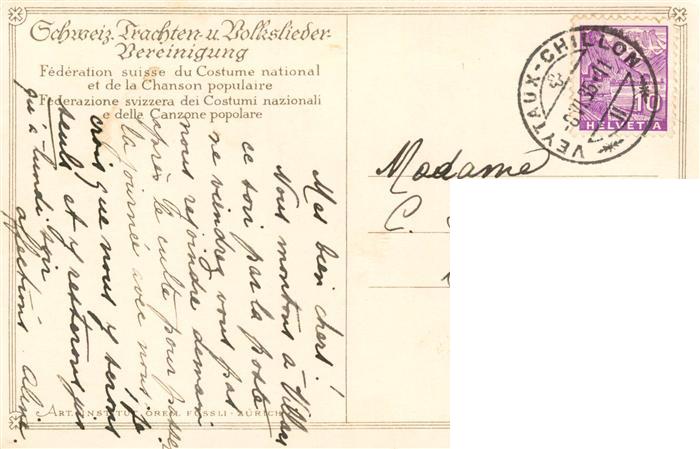 Schweiz. Trachten- u. Volkslieder-
Vereinigung
Fédération suisse du Costume national
et de la Chanson populaire
Federazione svizzera dei Costumi nazionali
e delle Canzone popolare
VEYTAUX-CHILLON
10
HELVETIA
Madame
C.
Mes bien chers!
Nous montons à Villars
ce soir par la poste
ne viendrez vous pas
nous rejoindre demain
après le culte pour passer
la journée avec nous. Je
crois que nous y serons
seuls et y resterons jus
qu'à lundi soir
affections Aline.
ART. INSTITUT ORELL FÜSSLI - ZÜRICH